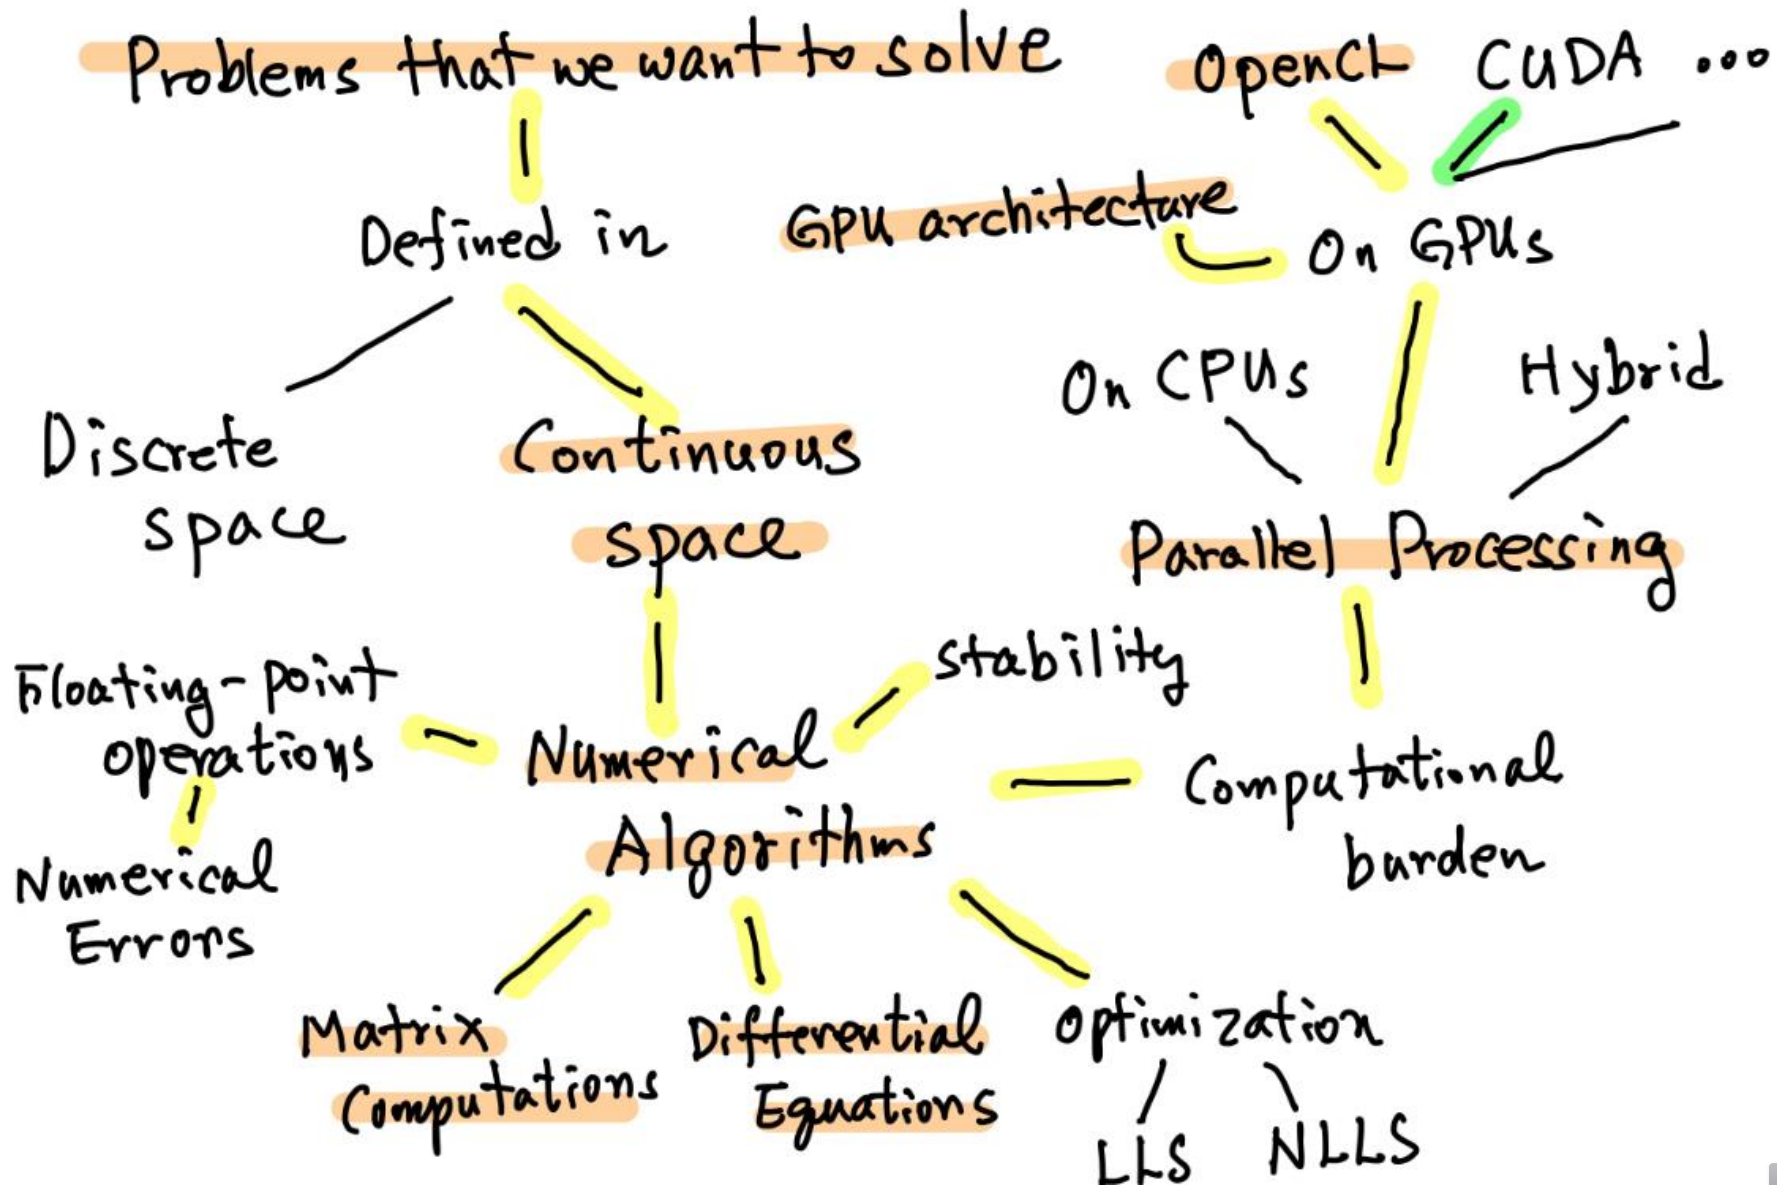 Problems that we want to solve
OpenCL CUDA ...
Defined in
GPU architecture
On GPUs
On CPUs
Hybrid
Discrete
space
Continuous
space
Parallel Processing
Floating-point
operations
stability
Numerical
Algorithms
Computational
burden
Numerical
Errors
Matrix
Computations
Differential
Equations
Optimization
LLS
NLLS